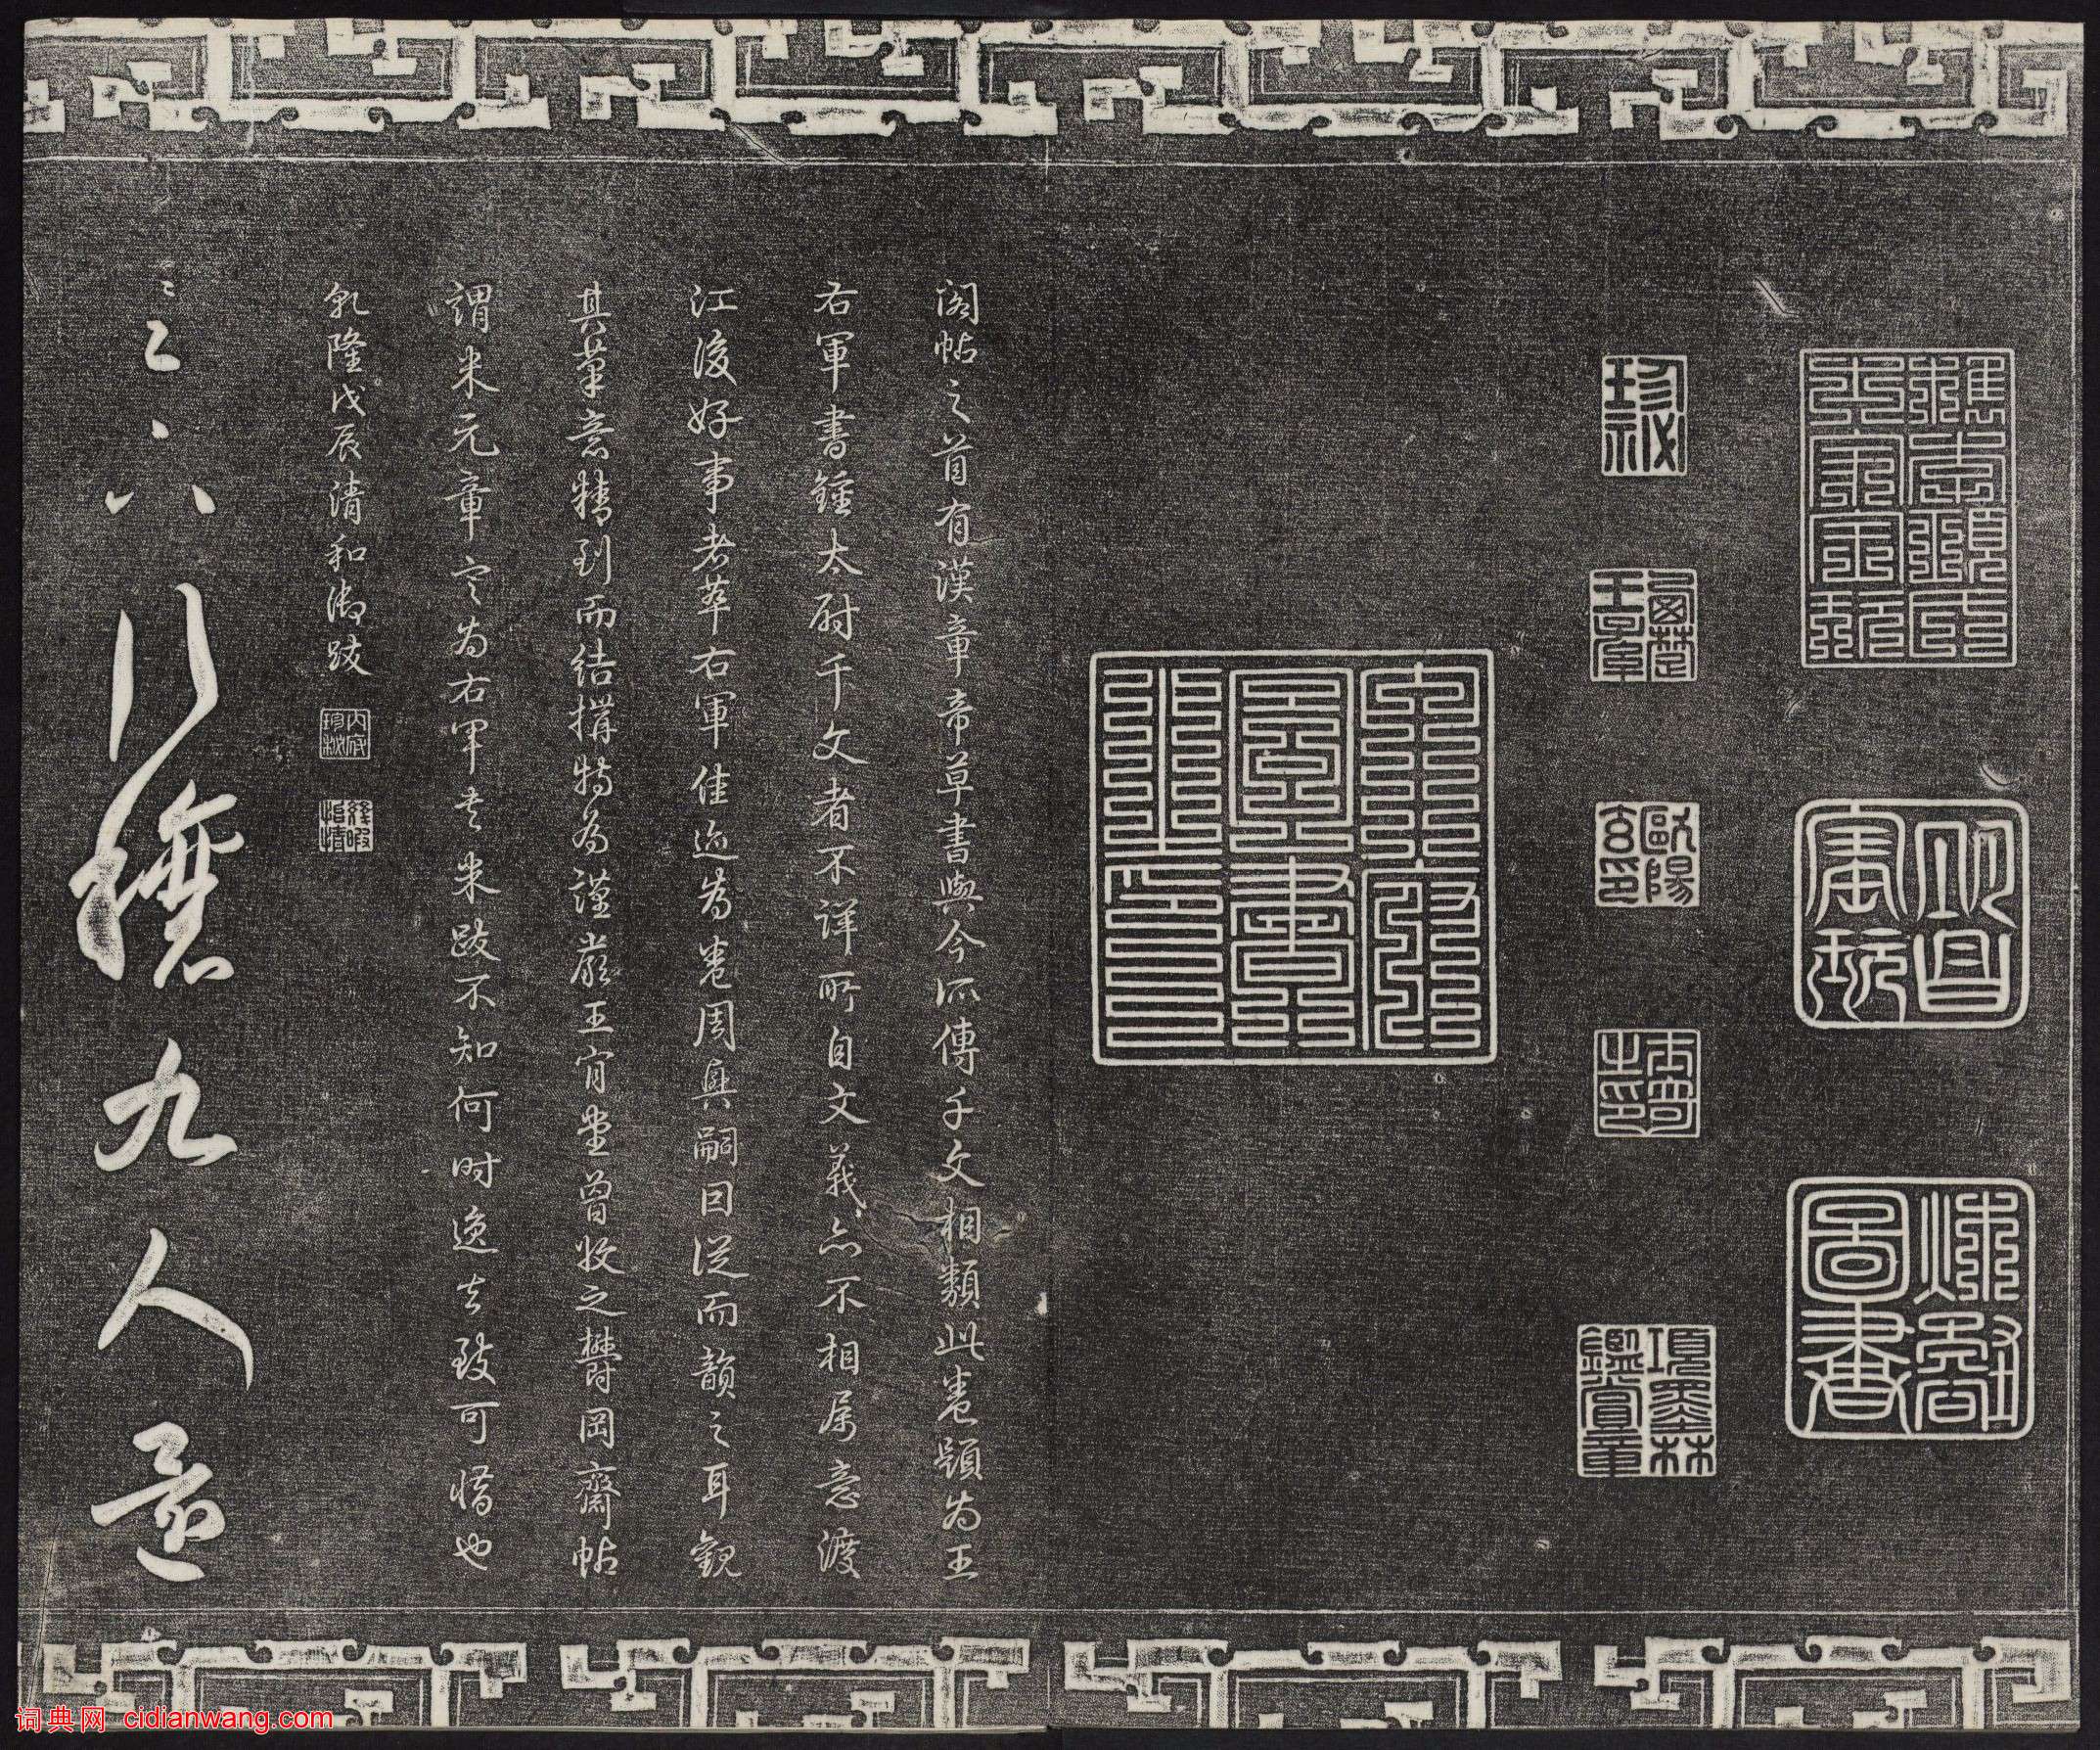 檇李項氏世家寶玩
珍祕
歐陽玄印
項墨林鑑賞章
閣帖之首有漢章帝草書與今所傳千文相類此卷題為王
右軍書鍾太尉千文者不詳所自文義亦不相屬意渡
江後好事者萃右軍佳迹為卷周興嗣因從而韻之耳觀
其筆意精到而結構特為謹嚴王肯堂曾收之鬱岡齋帖
謂米元章定為右軍書米跋不知何時逸去致可惜也
乾隆戊辰清和御跋
內府珍秘
幾暇怡情
六 九人
词典网 cidianwang.com